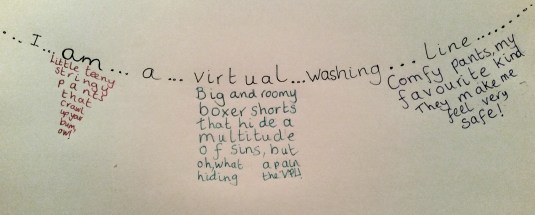 ...I...am...a...virtual...washing...line.......
little teeny
stringy
pants
that
crawl
up your
bum
ow!
Big and roomy
boxer shorts
that hide a
multitude
of sins, but
oh, what a pain
hiding the VPL!
Comfy pants, my
favourite kind
They make me
feel very
safe!